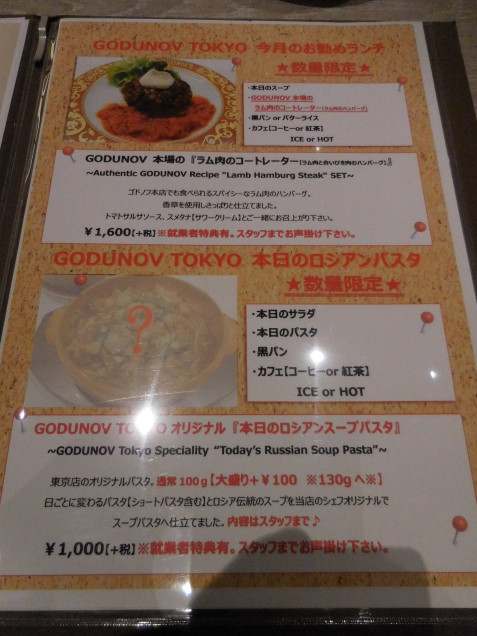 GODUNOV TOKYO 今月のお勧めランチ
★数量限定★
・本日のスープ
・GODUNOV 本場の
ラム肉のコートレーター【ラム肉のハンバーグ】
・黒パン or バターライス
・カフェ【コーヒーor 紅茶】
ICE or HOT
GODUNOV 本場の『ラム肉のコートレーター【ラム肉と合いびき肉のハンバーグ】』
~Authentic GODUNOV Recipe "Lamb Hamburg Steak" SET~
ゴドノフ本店でも食べられるスパイシーなラム肉のハンバーグ。
香草を使用しさっぱりと仕立てました。
トマトサルサソース、スメタナ【サワークリーム】とご一緒にお召上がり下さい。
¥1,600【+税】※就業者特典有。スタッフまでお声掛け下さい。
GODUNOV TOKYO 本日のロシアンパスタ
★数量限定★
?
・本日のサラダ
・本日のパスタ
・黒パン
・カフェ【コーヒーor 紅茶】
ICE or HOT
GODUNOV TOKYO オリジナル『本日のロシアンスープパスタ』
~GODUNOV Tokyo Speciality "Today's Russian Soup Pasta"~
東京店のオリジナルパスタ。通常 100g【大盛り+¥100 ※130g へ※】
日ごとに変わるパスタ【ショートパスタ含む】とロシア伝統のスープを当店のシェフオリジナルで
スープパスタへ仕立てました。内容はスタッフまで♪
¥1,000【+税】※就業者特典有。スタッフまでお声掛け下さい。